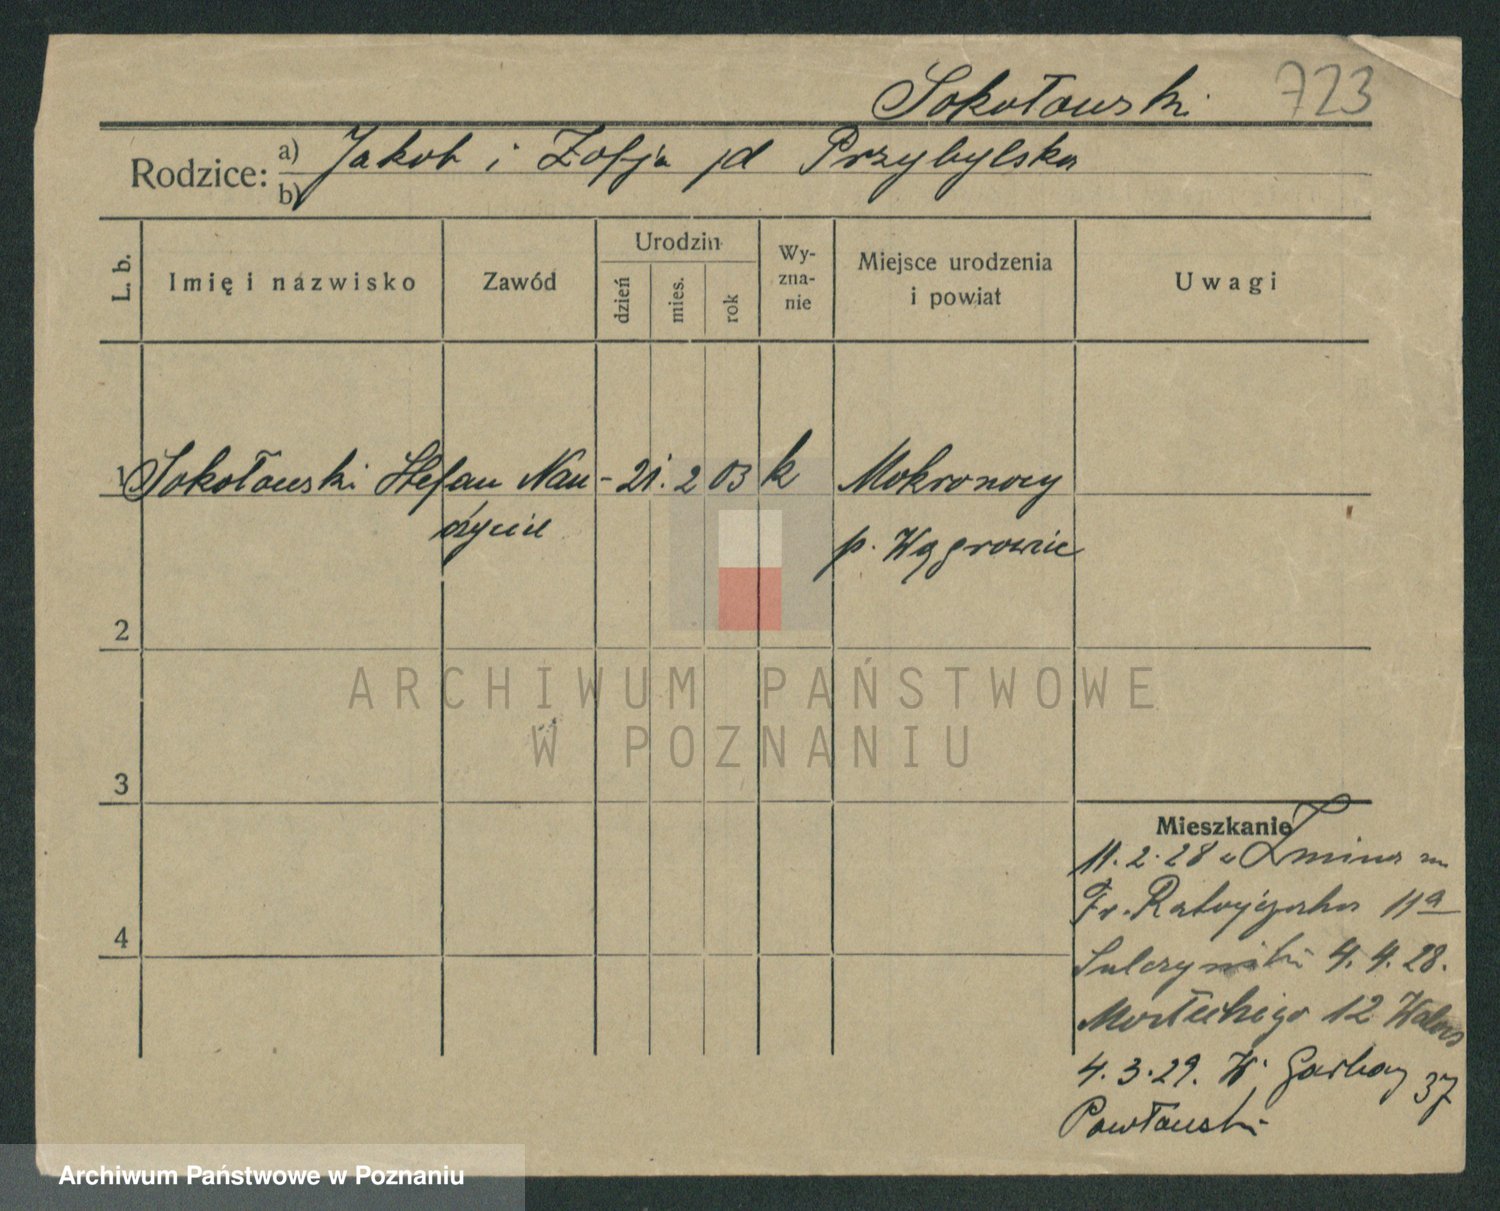 Sokołowski 723
Rodzice: a) Jakob i Zofja d Przybylska
b)
L. b. Imię i nazwisko Zawód Urodzin dzień mies. rok Wy-zna-nie Miejsce urodzenia i powiat Uwagi
1 Sokołowski Stefan Nau- 21. 2 03 k Mokronosy
czyciel p. Wągrowiec
2
3
4
Mieszkanie
11.2.28 Żnina
Fr. Ratajczaka 11a
Sulczyński 4.4.28.
12
4.3.29. W. Garbary 37
Pawłowski
ARCHIWUM PAŃSTWOWE
W POZNANIU
Archiwum Państwowe w Poznaniu